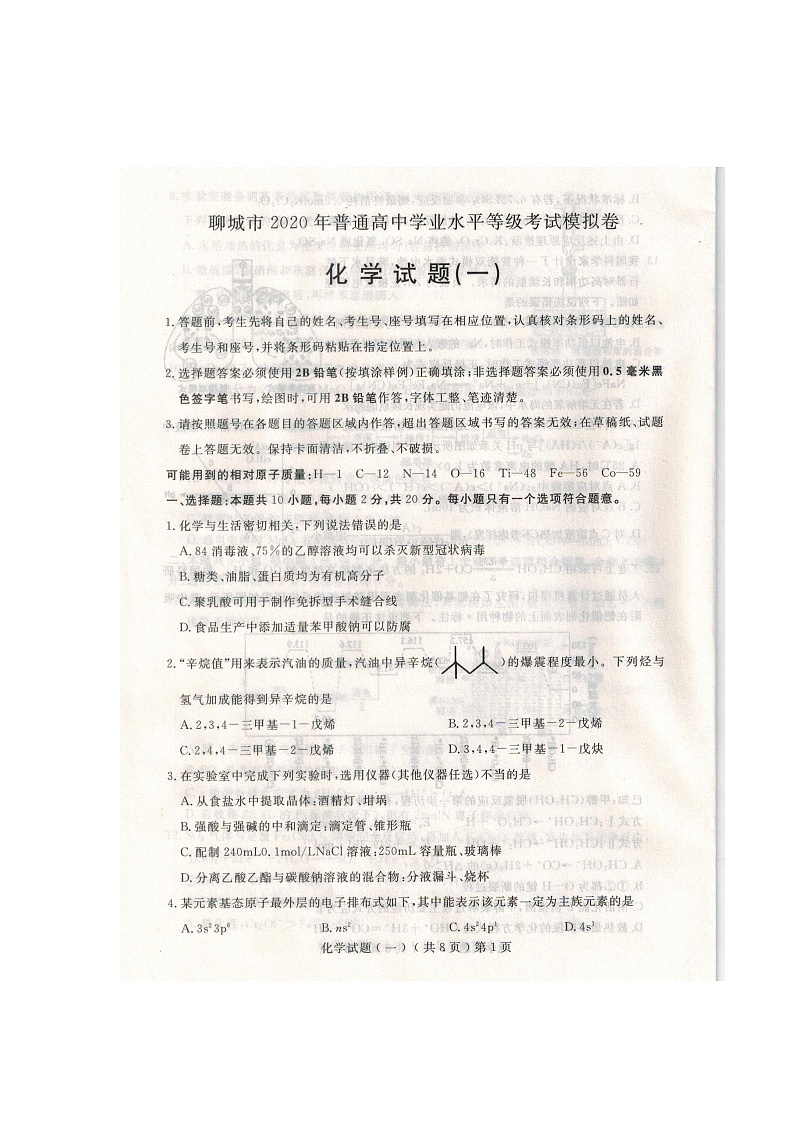 聊城市 2020 年普通高中学业水平等级考试模拟卷
化学试题(一)
1.答题前,考生先将自己的姓名、考生号、座号填写在相应位置,认真核对条形码上的姓名、
考生号和座号,并将条形码粘贴在指定位置上。
2.选择题答案必须使用2B铅笔(按填涂样例)正确填涂;非选择题答案必须使用0.5毫米黑
色签字笔书写,绘图时,可用2B铅笔作答,字体工整、笔迹清楚。
3.请按照题号在各题目的答题区域内作答,超出答题区域书写的答案无效;在草稿纸、试题
卷上答题无效。保持卡面清洁,不折叠、不破损。
可能用到的相对原子质量:H—1 C—12 N—14 O—16 Ti—48 Fe—56 Co—59
一、选择题:本题共10小题,每小题2分,共20分。每小题只有一个选项符合题意。
1.化学与生活密切相关,下列说法错误的是
A.84消毒液、75%的乙醇溶液均可以杀灭新型冠状病毒
B.糖类、油脂、蛋白质均为有机高分子
C.聚乳酸可用于制作免拆型手术缝合线
D.食品生产中添加适量苯甲酸钠可以防腐
2.“辛烷值”用来表示汽油的质量,汽油中异辛烷( )的爆震程度最小。下列烃与
氢气加成能得到异辛烷的是
A.2,3,4-三甲基-1-戊烯 B.2,3,4-三甲基-2-戊烯
C.2,4,4-三甲基-2-戊烯 D.3,4,4-三甲基-1-戊炔
3.在实验室中完成下列实验时,选用仪器(其他仪器任选)不当的是
A.从食盐水中提取晶体:酒精灯、坩埚
B.强酸与强碱的中和滴定:滴定管、锥形瓶
C.配制240mL0.1mol/LNaCl溶液:250mL容量瓶、玻璃棒
D.分离乙酸乙酯与碳酸钠溶液的混合物:分液漏斗、烧杯
4.某元素基态原子最外层的电子排布式如下,其中能表示该元素一定为主族元素的是
A.3s²3p⁶ B.ns² C.4s²4p⁴ D.4s¹
化学试题(一)(共8页)第1页